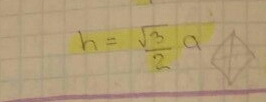 h = √3/2 a